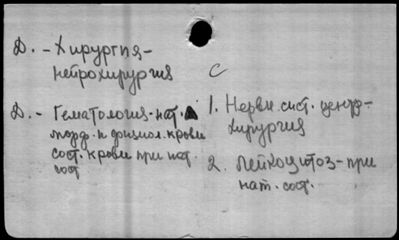 Д. - Хирургия-
нейрохирургия
С
Д. - Гематология-пат.
морф. и физиол. крови
сост. крови при пат.
сост
1. Нервн. сист. центр-
хирургия
2. Лейкоцитоз-при
пат. сост.